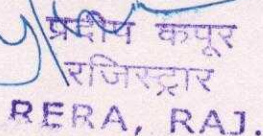 प्रदीप कपूर
रजिस्ट्रार
RERA, RAJ.